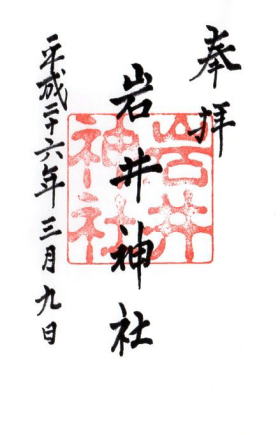 奉拝
岩井神社
岩井神社
平成二十六年三月九日